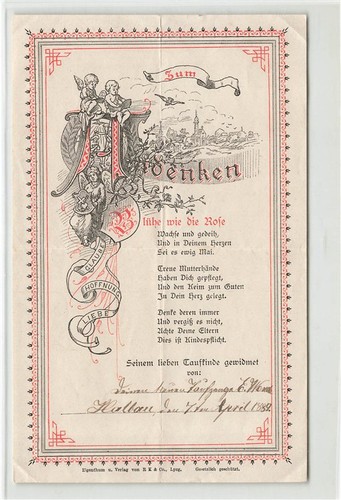 Zum
Andenken
Blühe wie die Rose
Wachse und gedeih,
Und in Deinem Herzen
Sei es ewig Mai.
Treue Mutterhände
Haben Dich gepflegt,
Und den Keim zum Guten
In Dein Herz gelegt.
Denke deren immer
Und vergiß es nicht,
Achte Deine Eltern
Dies ist Kindespflicht.
GLAUBE
HOFFNUNG
LIEBE
Seinem lieben Taufkinde gewidmet
von:
deinem Taufzeuge E.
den April
Eigenthum u. Verlag von E K & Co., Lpzg. Gesetzlich geschützt.